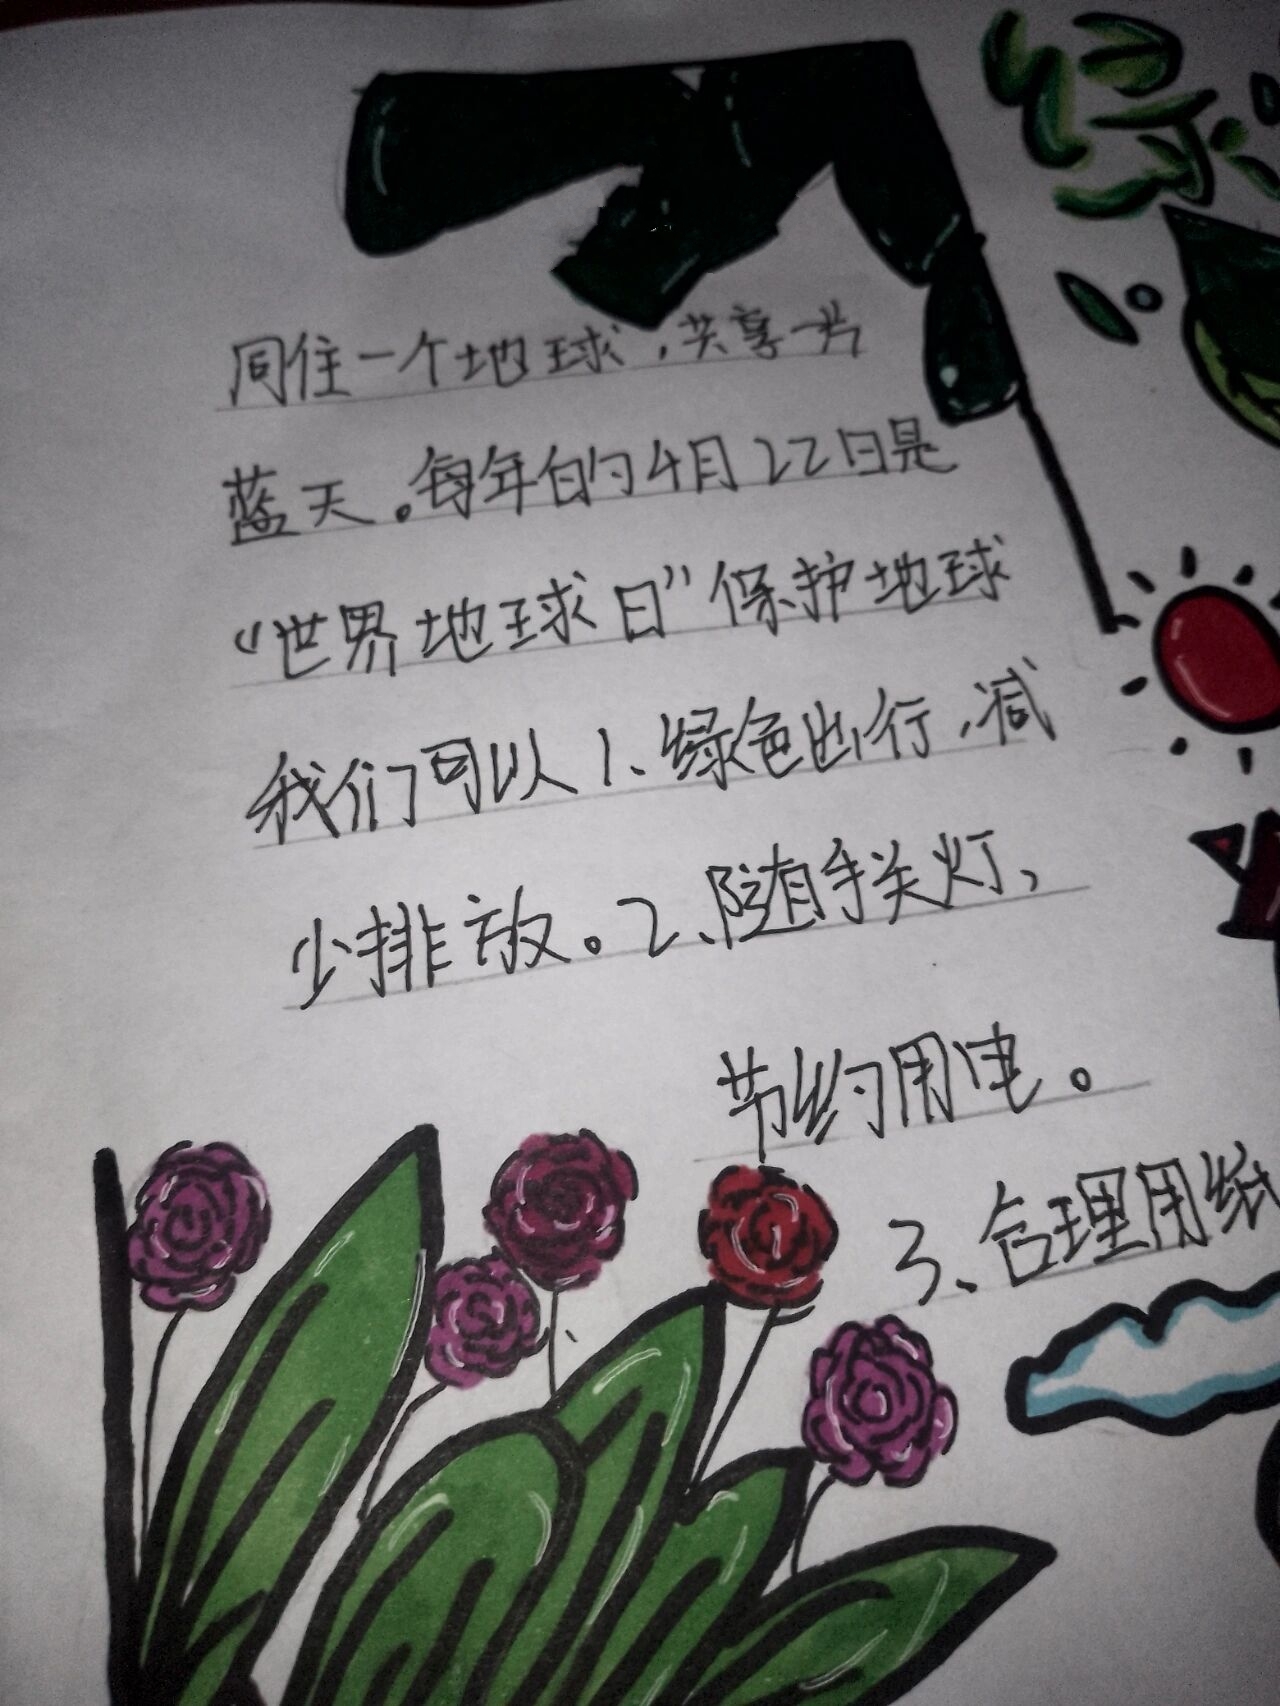 绿
同住一个地球，共享一片
蓝天。每年的4月22日是
“世界地球日”保护地球
我们可以1、绿色出行，减
少排放。2、随手关灯、
节约用电。
3、合理用纸